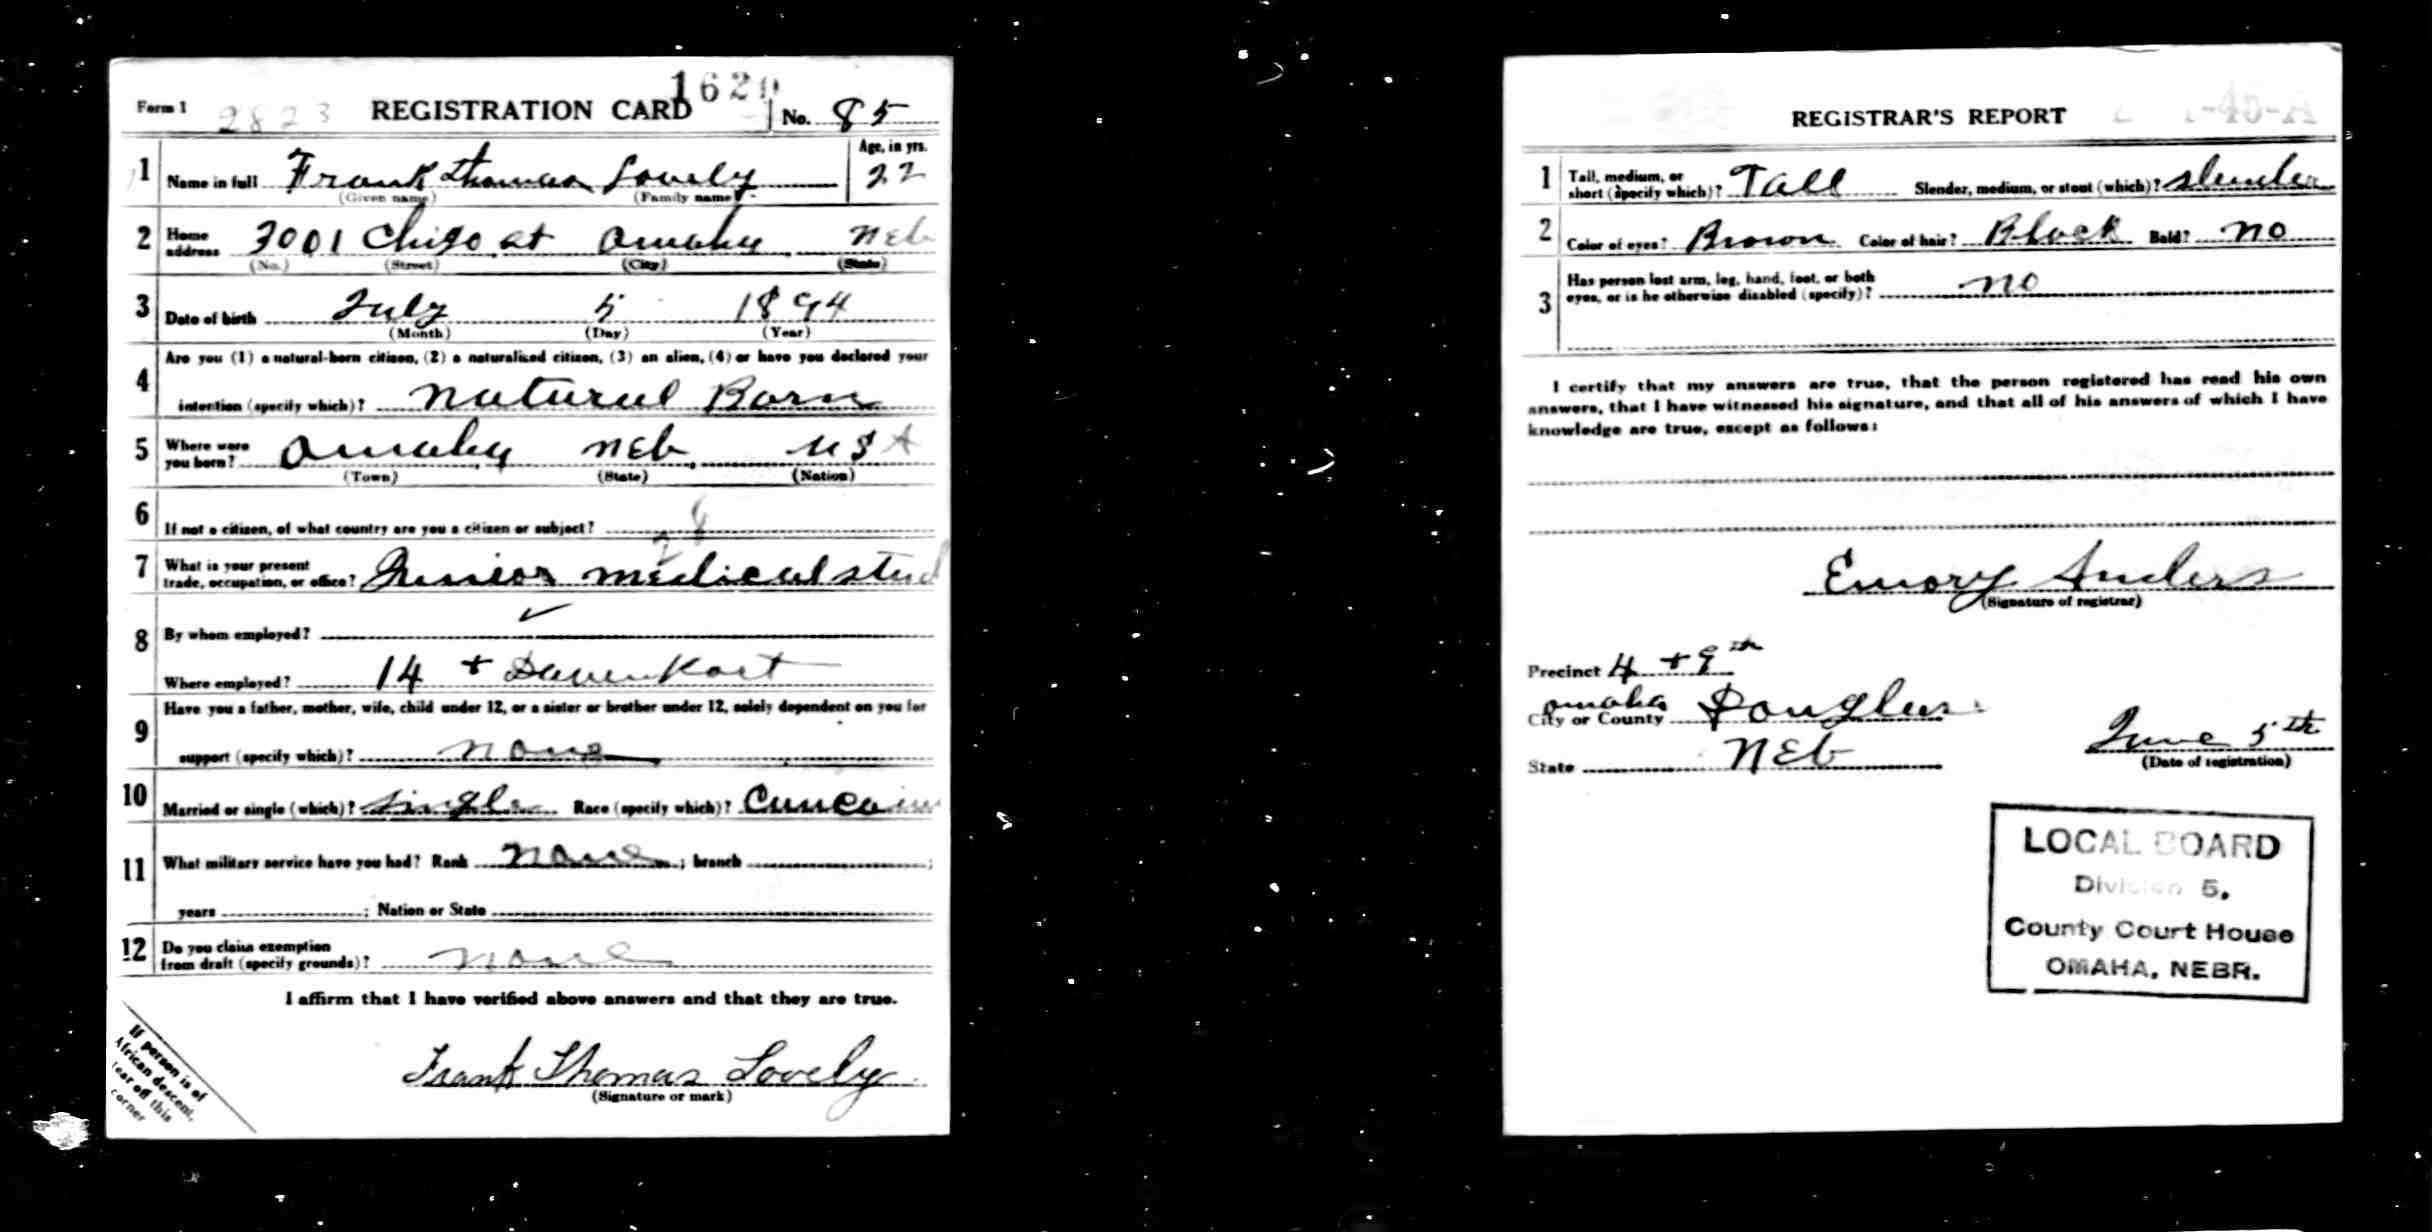 1620
Form 1 2823 REGISTRATION CARD No. 85
1 Name in full Frank Thomas Lovely Age, in yrs. 22
(Given name) (Family name)
2 Home address 3001 Chigo st Omaha Neb
(No.) (Street) (City) (State)
3 Date of birth July 5 1894
(Month) (Day) (Year)
4 Are you (1) a natural-born citizen, (2) a naturalized citizen, (3) an alien, (4) or have you declared your
intention (specify which)? Natural Born
5 Where were you born? Omaha Neb USA
(Town) (State) (Nation)
6 If not a citizen, of what country are you a citizen or subject?
28
7 What is your present trade, occupation, or office? Junior medical stud
8 By whom employed?
Where employed? 14 + Davenport
9 Have you a father, mother, wife, child under 12, or a sister or brother under 12, solely dependent on you for
support (specify which)? none
10 Married or single (which)? Single Race (specify which)?
11 What military service have you had? Rank None ; branch ;
years ; Nation or State
12 Do you claim exemption from draft (specify grounds)? None
I affirm that I have verified above answers and that they are true.
Frank Thomas Lovely
(Signature or mark)
If person is of
African descent,
tear off this
corner
REGISTRAR'S REPORT
1 Tall, medium, or short (specify which)? Tall Slender, medium, or stout (which)? slender
2 Color of eyes? Brown Color of hair? Black Bald? no
3 Has person lost arm, leg, hand, foot, or both
eyes, or is he otherwise disabled (specify)? no
I certify that my answers are true, that the person registered has read his own
answers, that I have witnessed his signature, and that all of his answers of which I have
knowledge are true, except as follows:
Emory Anders
(Signature of registrar)
Precinct 4 + 9th
Omaha
City or County Douglas
State Neb
June 5th
(Date of registration)
LOCAL BOARD
Division 5,
County Court House
OMAHA, NEBR.